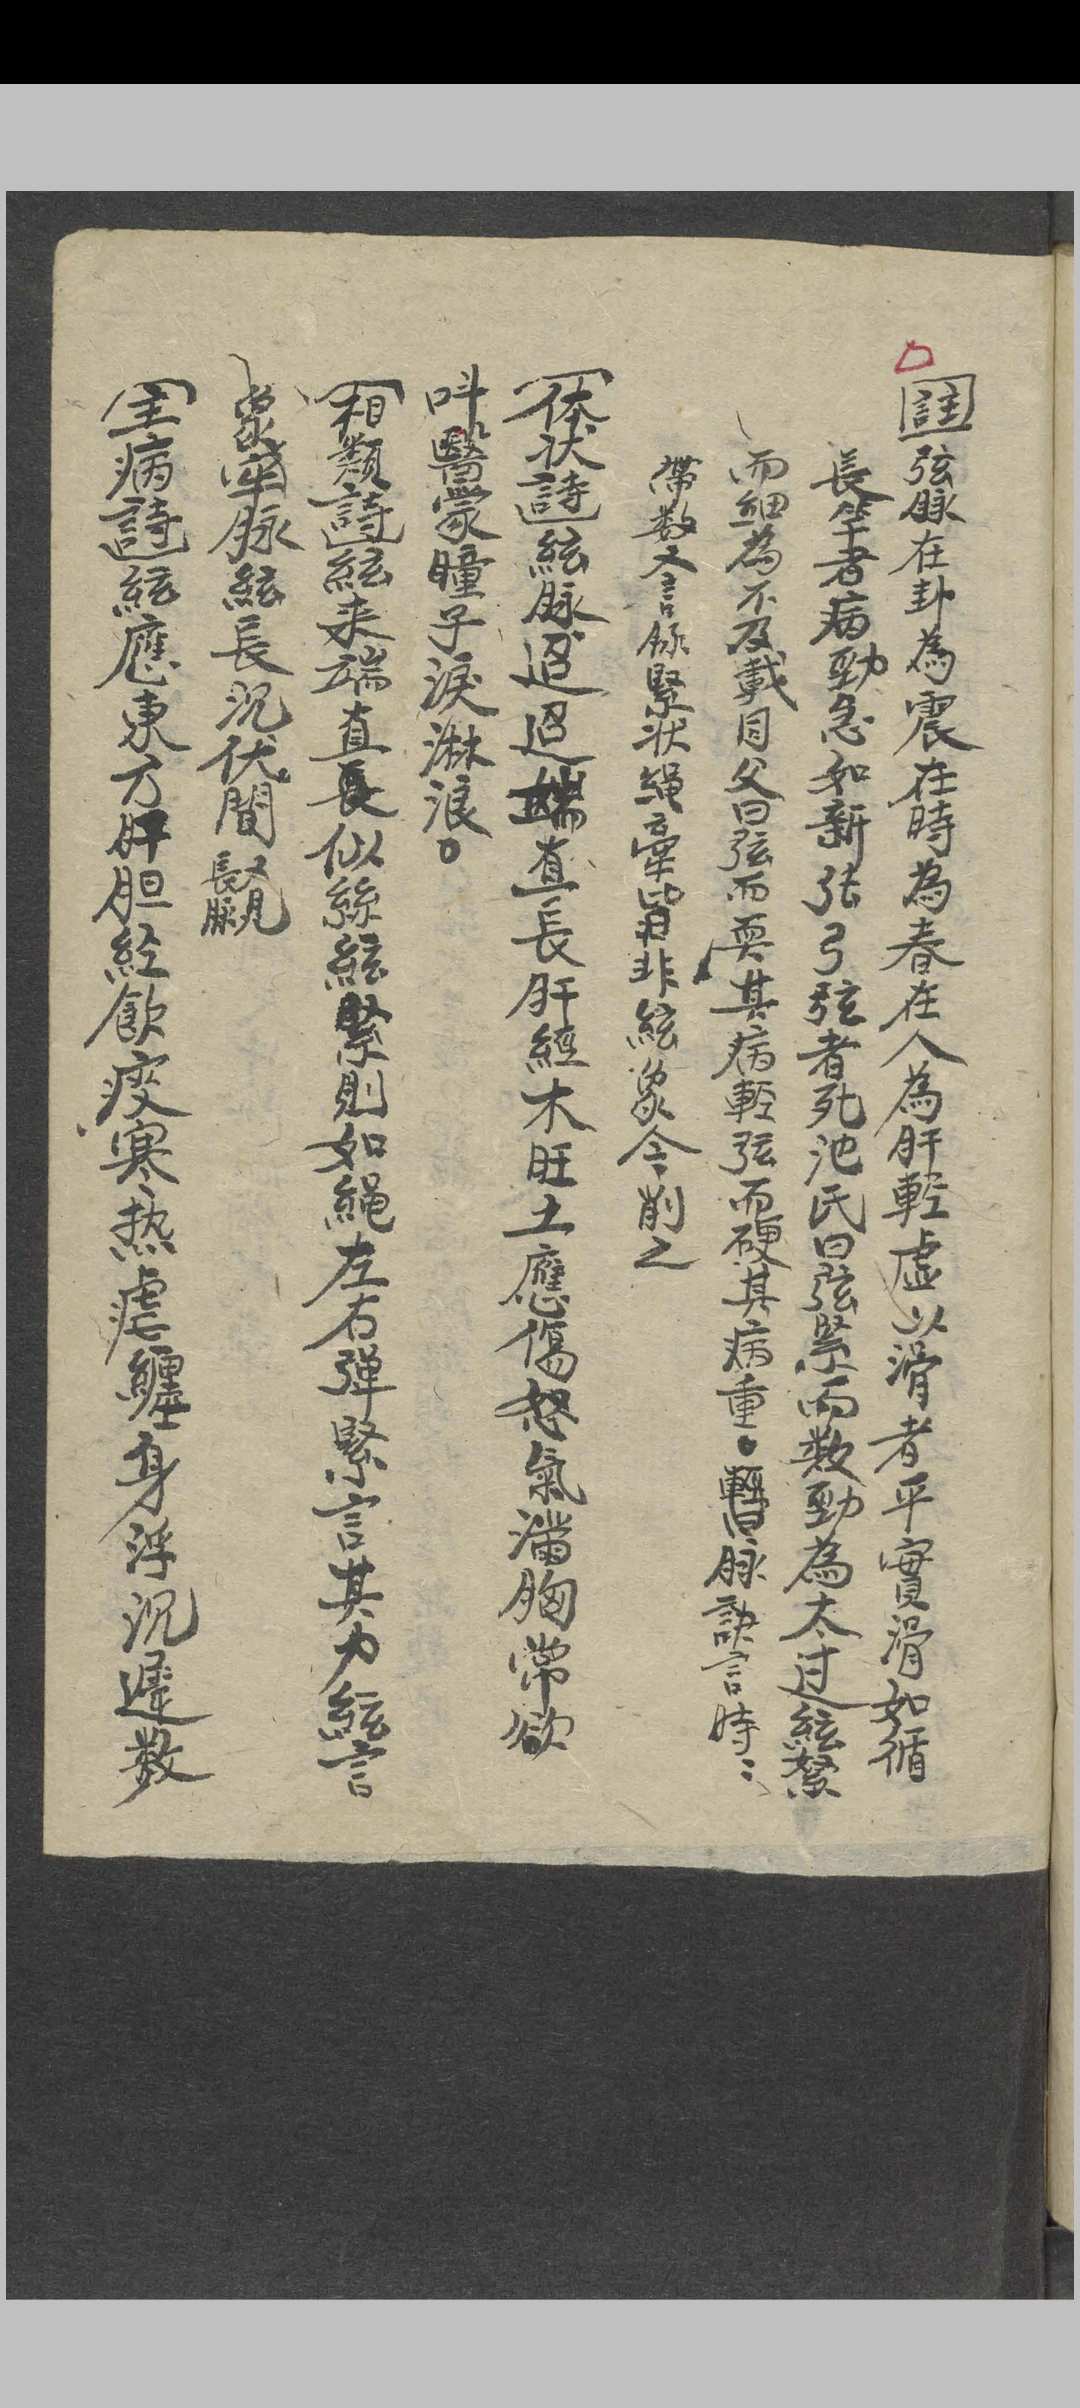 註弦脉在卦為震在時為春在人為肝輕虛以滑者平實滑如循
長竿者病勁急如新張弓弦者死池氏曰弦緊而数勁為太过絃緊
而細為不及戴同父曰弦而耎其病輕弦而硬其病重。脉訣言時〻
帶数又言脉緊状繩牽皆非絃象今削之
体状詩絃脉迢迢端直長肝經木旺土應傷怒氣滿胸常欲
呌翳蒙瞳子淚淋浪。
相類詩絃来端直長似絲絃緊則如繩左右弹緊言其力絃言
象牢脉絃長沉伏間又見長脉
主病詩絃應東方肝胆經飲痰寒热瘧纏身浮沉遲数